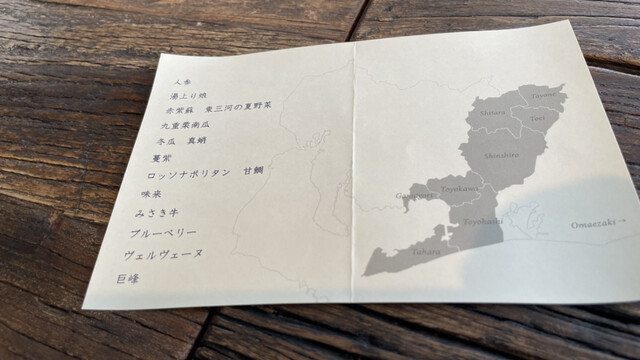 人参
湯上り娘
赤紫蘇 東三河の夏野菜
九重栗南瓜
冬瓜 真鯛
蔓紫
ロッソナポリタン 甘鯛
味来
みさき牛
ブルーベリー
ヴェルヴェーヌ
巨峰
Toyone
Shitara
Toei
Shinshiro
Gamagori
Toyokawa
Toyohashi
Omaezaki→
Tahara